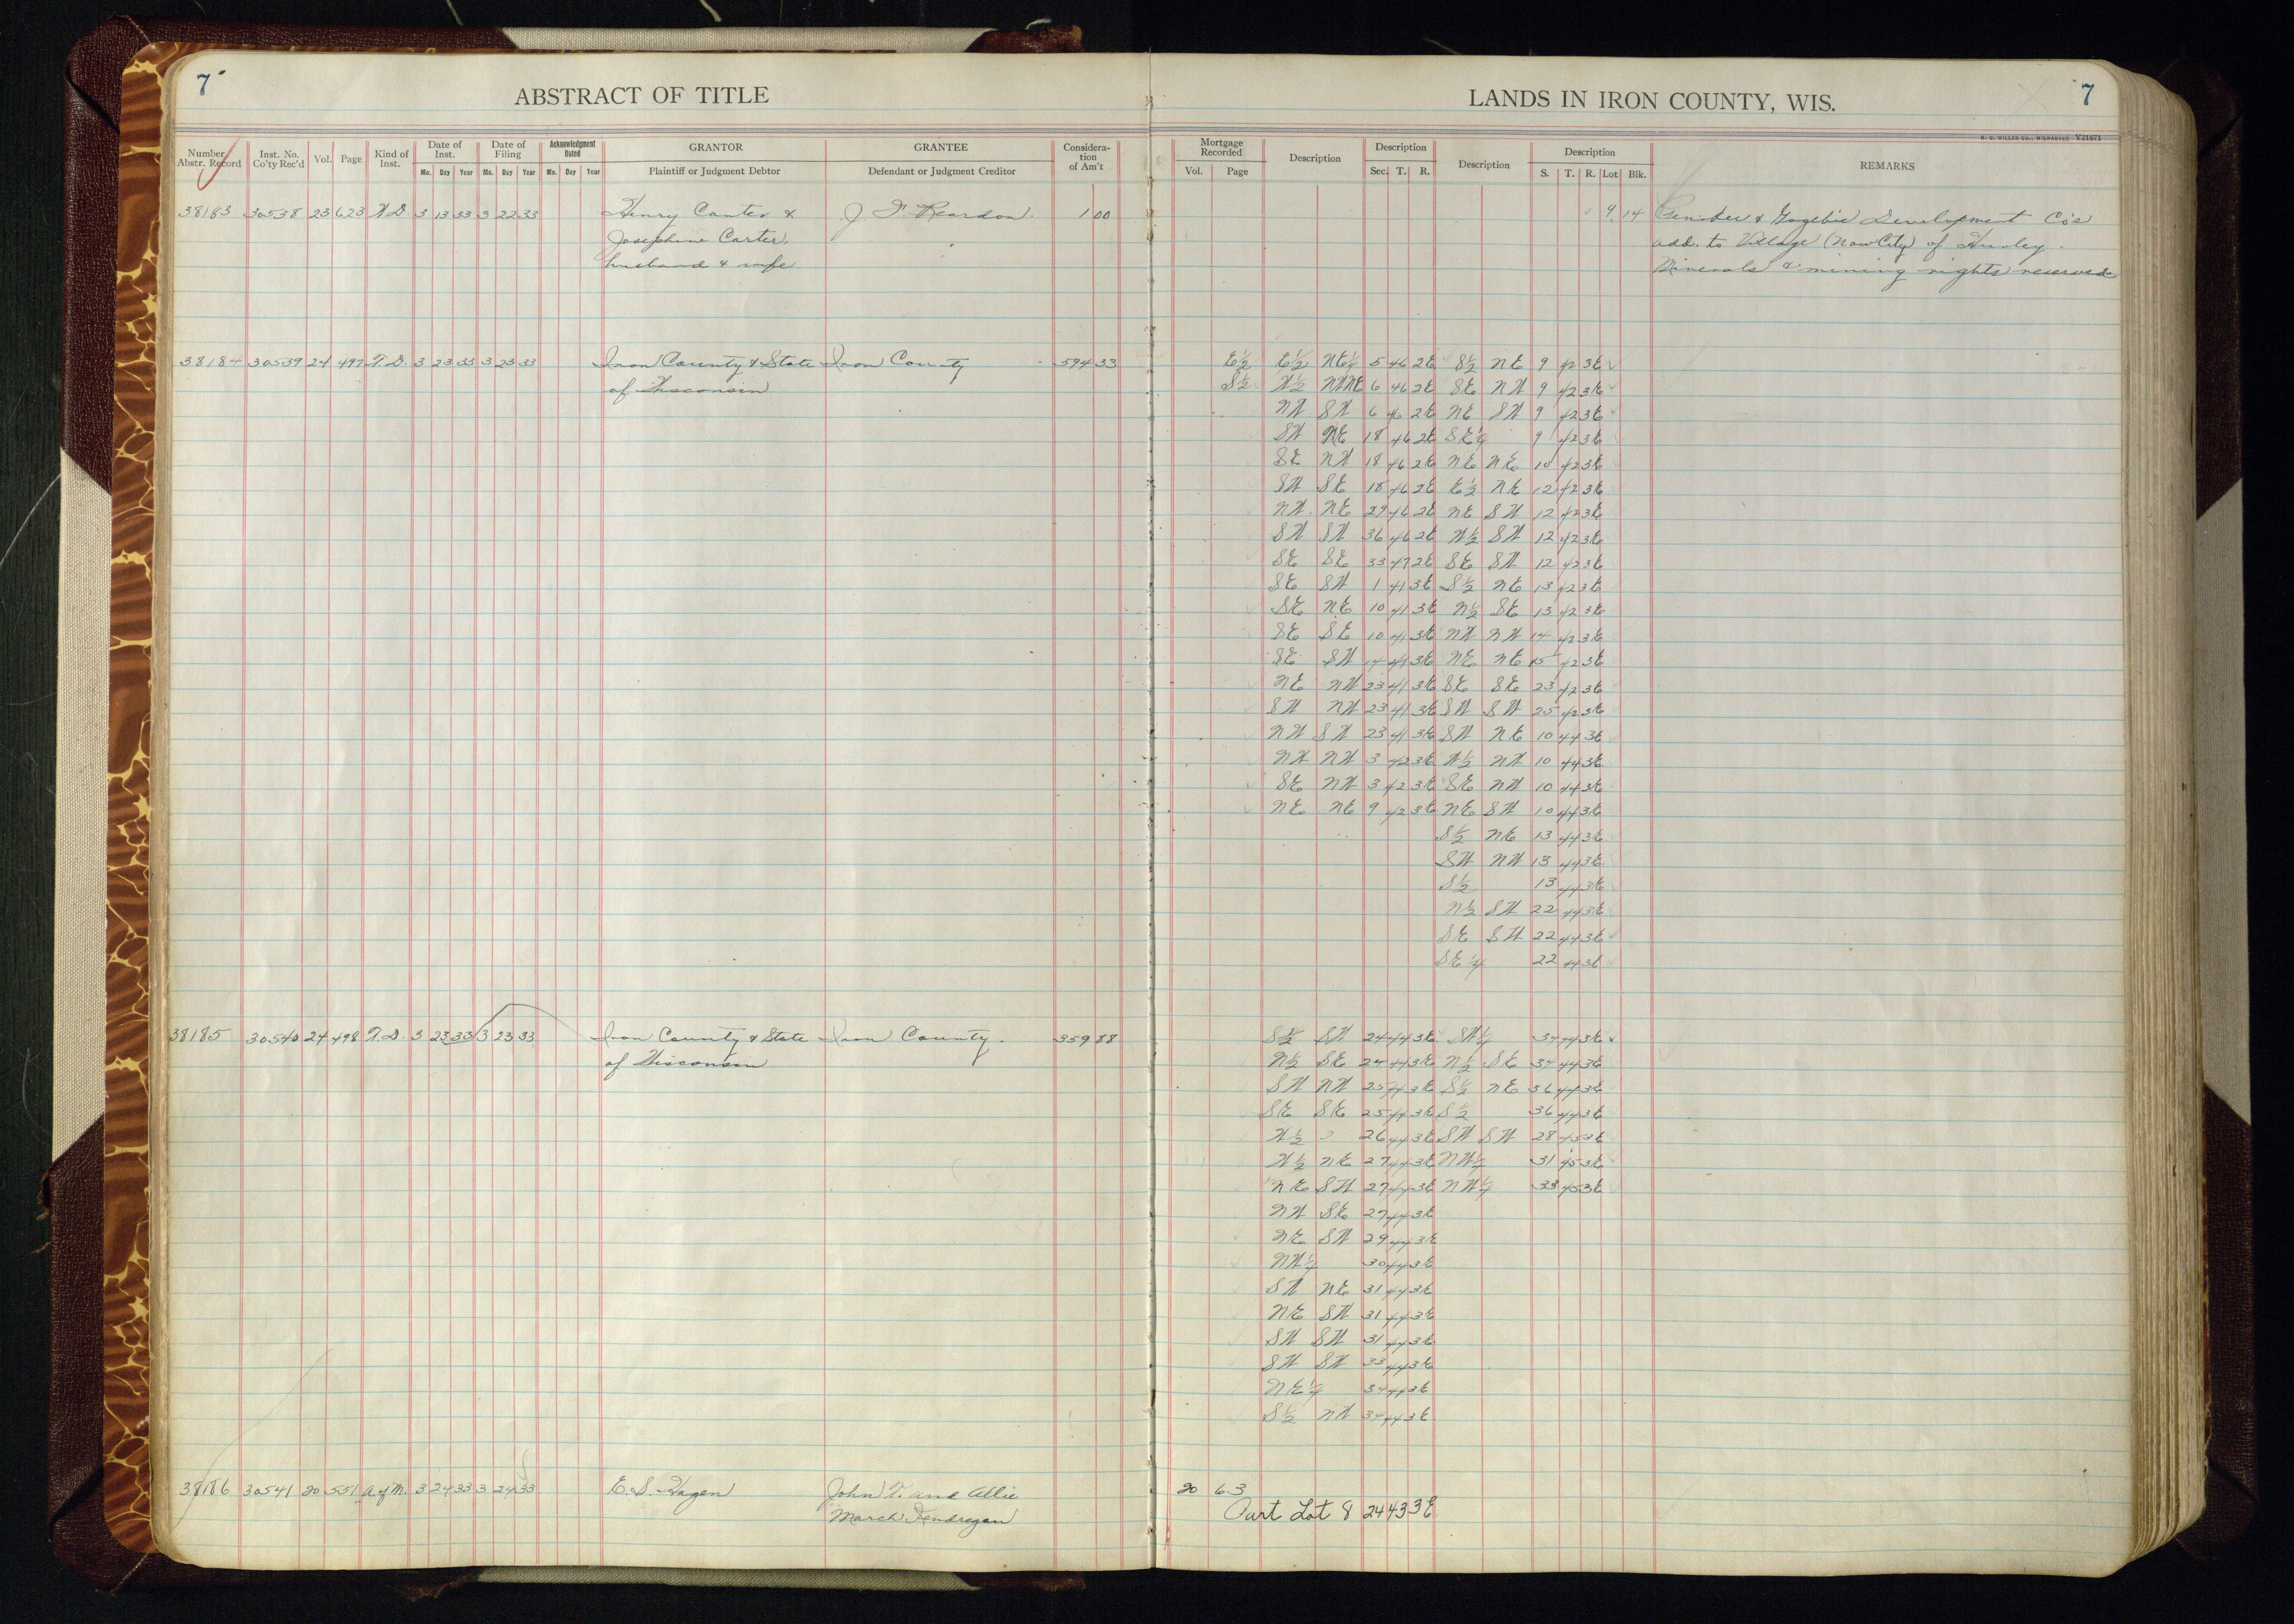 7
ABSTRACT OF TITLE
LANDS IN IRON COUNTY, WIS.
7
H. C. MILLER CO., MILWAUKEE V21671
Number Abstr. Record | Inst. No. Co'ty Rec'd | Vol. | Page | Kind of Inst. | Date of Inst. Mo. Day Year | Date of Filing Mo. Day Year | Acknowledgment Dated Mo. Day Year | GRANTOR Plaintiff or Judgment Debtor | GRANTEE Defendant or Judgment Creditor | Considera-tion of Am't
Mortgage Recorded Vol. Page | Description | Description Sec. T. R. | Description | Description S. T. R. Lot Blk. | REMARKS
38183 30538 23 623 W.D. 3 13 33 3 22 33 Henry Carter & J. F. Reardon. 1 00 9 14 & Gogebic Development Co's
Josephine Carter, add. to Village (now City) of Hurley.
husband & wife Minerals & mining rights reserved
38184 30539 24 497 T.D. 3 23 33 3 23 33 Iron County & State Iron County 594 33 E½ E½ NE¼ 5 46 2E S½ NE 9 42 3E
of Wisconsin S½ W½ NWNE 6 46 2E SE NW 9 42 3E
NW SW 6 46 2E NE SW 9 42 3E
SW NE 18 46 2E SE¼ 9 42 3E
SE NW 18 46 2E NE NE 10 42 3E
SW SE 18 46 2E E½ NE 12 42 3E
NW NE 29 46 2E NE SW 12 42 3E
SW SW 36 46 2E W½ SW 12 42 3E
SE SE 33 47 2E SE SW 12 42 3E
SE SW 1 41 3E S½ NE 13 42 3E
SE NE 10 41 3E N½ SE 13 42 3E
SE SE 10 41 3E NW NW 14 42 3E
SE SW 14 41 3E NE NE 15 42 3E
NE NW 23 41 3E SE SE 23 42 3E
SW NW 23 41 3E SW SW 25 42 3E
NW SW 23 41 3E SW NE 10 44 3E
NW NW 3 42 3E W½ NW 10 44 3E
SE NW 3 42 3E SE NW 10 44 3E
NE NE 9 42 3E NE SW 10 44 3E
S½ NE 13 44 3E
SW NW 13 44 3E
S½ 13 44 3E
N½ SW 22 44 3E
SE SW 22 44 3E
SE¼ 22 44 3E
38185 30540 24 498 T.D. 3 23 33 3 23 33 Iron County & State Iron County. 359 88 S½ SW 24 44 3E SW¼ 34 44 3E
of Wisconsin N½ SE 24 44 3E N½ SE 34 44 3E
SW NW 25 44 3E S½ NE 36 44 3E
SE SE 25 44 3E S½ 36 44 3E
W½ 26 44 3E SW SW 28 45 3E
W½ NE 27 44 3E NW¼ 31 45 3E
NE SW 27 44 3E NW¼ 33 45 3E
NW SE 27 44 3E
NE SW 29 44 3E
NW¼ 30 44 3E
SW NE 31 44 3E
NE SW 31 44 3E
SW SW 31 44 3E
SW SW 33 44 3E
NE¼ 34 44 3E
S½ NW 34 44 3E
38186 30541 20 551 A of M. 3 24 33 3 24 33 E. S. Hagen John T. and Allie 20 63
March Part Lot 8 24 43 3E